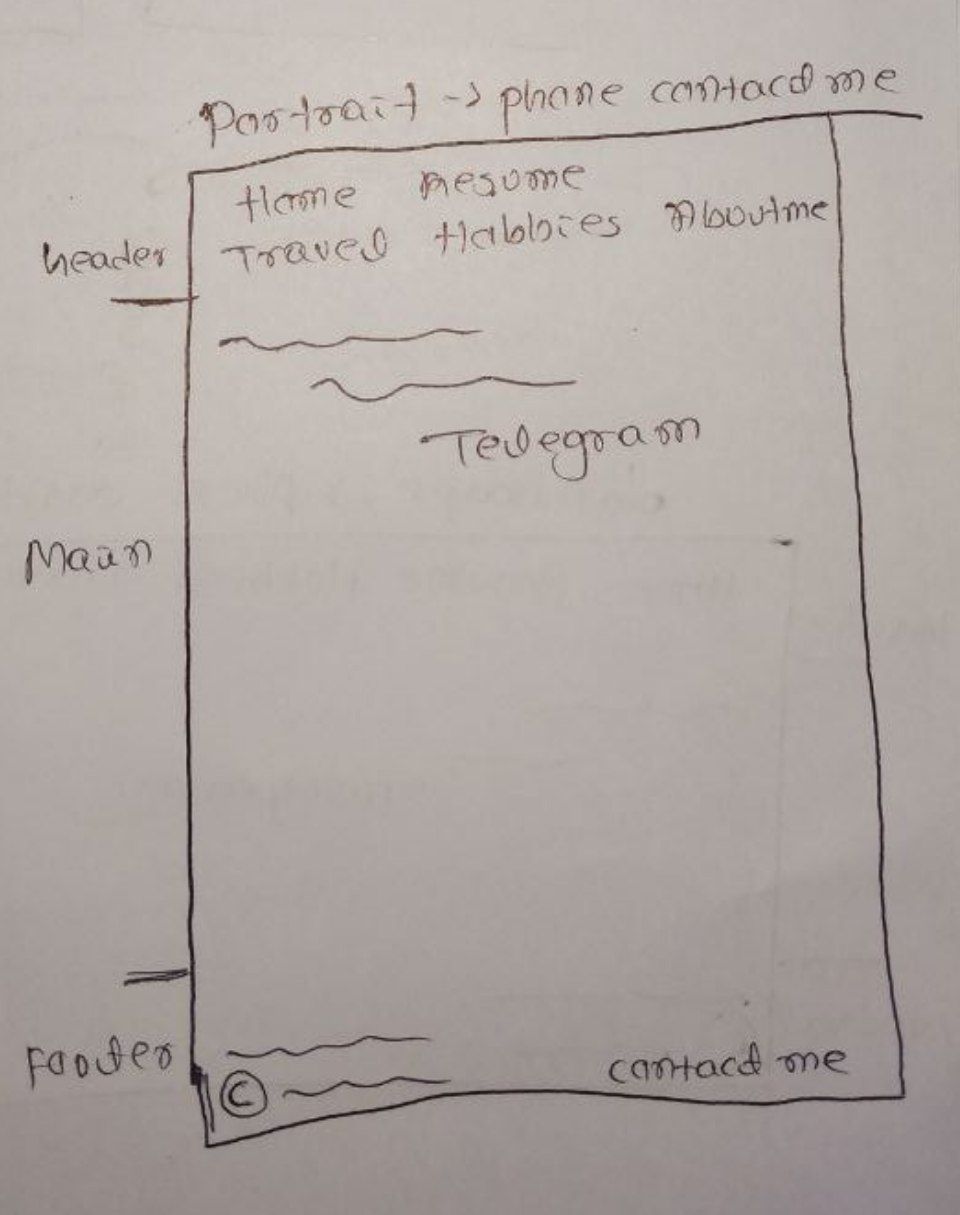 Portrait -> phone contact me
Home Resume
Travel Hobbies About me
header
Telegram
Main
Footer
© contact me